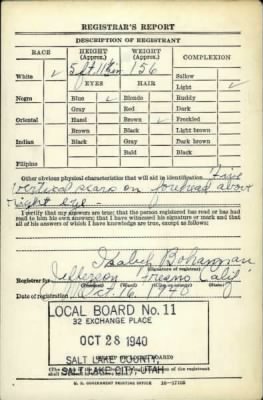 REGISTRAR'S REPORT
DESCRIPTION OF REGISTRANT
RACE HEIGHT (Approx.) WEIGHT (Approx.) COMPLEXION
5 ft 156
White ✓ EYES HAIR Sallow
Light ✓
Negro Blue ✓ Blonde Ruddy
Gray Red Dark
Oriental Hazel Brown ✓ Freckled
Brown Black Light brown
Indian Black Gray Dark brown
Bald Black
Filipino
Other obvious physical characteristics that will aid in identification
vertical scars on forehead above
right eye -
I certify that my answers are true; that the person registered has read or has had
read to him his own answers; that I have witnessed his signature or mark and that
all of his answers of which I have knowledge are true, except as follows:
Isabel Bohannan
(Signature of registrar)
Registrar for Jefferson Fresno Calif
Date of registration Oct. 16, 1940
LOCAL BOARD No. 11
32 EXCHANGE PLACE
OCT 28 1940
SALT LAKE COUNTY,
SALT LAKE CITY, UTAH
U. S. GOVERNMENT PRINTING OFFICE